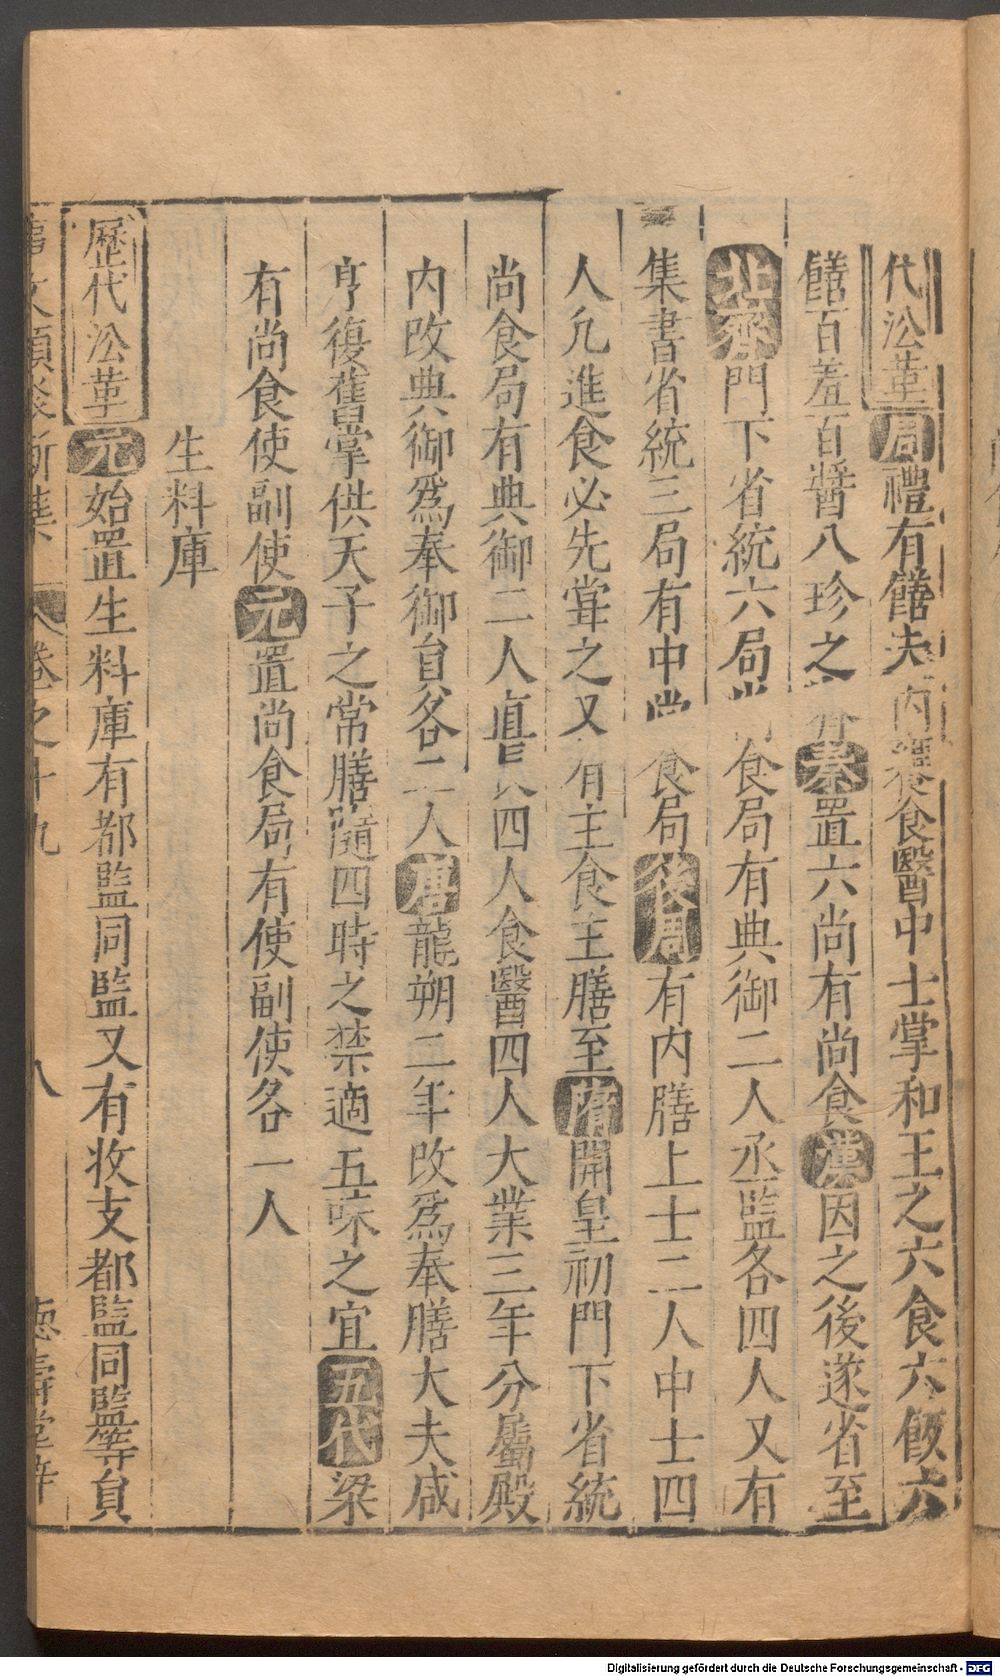 代㳂革周禮有饍夫內饔食醫中士掌和王之六食六飯六
饍百羞百醬八珍之齊秦置六尚有尚食漢因之後遂省至
北齊門下省統六局尚食局有典御二人丞監各四人又有
集書省統三局有中尚食局後周有内膳上士二人中士四
人凢進食必先甞之又有主食主膳至隋開皇初門下省統
尚食局有典御二人直長四人食醫四人大業三年分屬殿
内改典御爲奉御貟各二人唐龍朔二年改爲奉膳大夫咸
亨復舊掌供天子之常膳隨四時之禁適五味之宜五代梁
有尚食使副使元置尚食局有使副使各一人
生料庫
歷代㳂革元始置生料庫有都監同監又有收支都監同監等貟
卷之十九 八 德壽堂梓
Digitalisierung gefördert durch die Deutsche Forschungsgemeinschaft - DFG